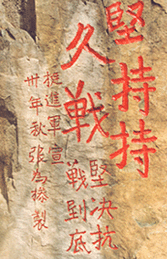 堅持持
久戰
堅决抗
戰到底
挺進軍宣
卅年秋張為製